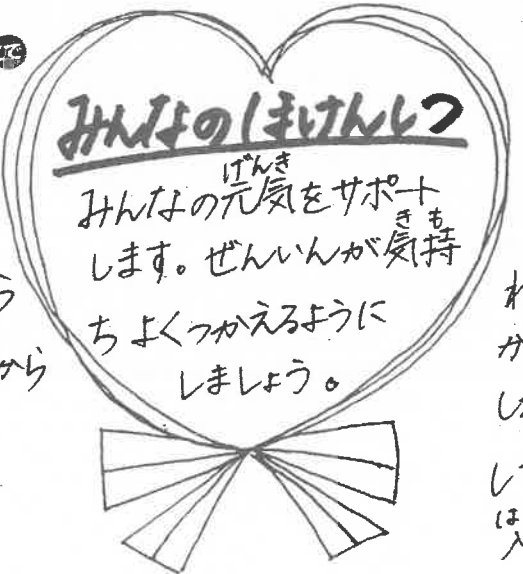 みんなのほけんしつ
みんなの元気をサポート
げんき
します。ぜんいんが気持
きも
ちよくつかえるように
しましょう。